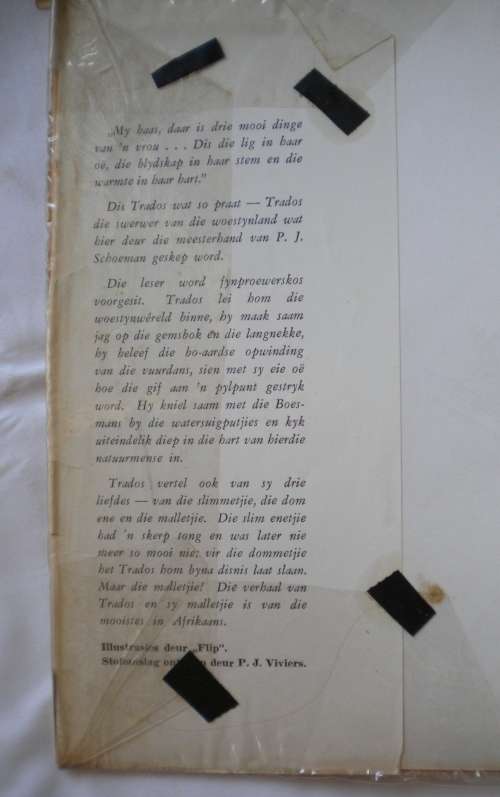 „My baas, daar is drie mooi dinge
van 'n vrou . . . Dis die lig in haar
oë, die blydskap in haar stem en die
warmte in haar hart."
Dis Trados wat so praat — Trados
die swerwer van die woestynland wat
hier deur die meesterhand van P. J.
Schoeman geskep word.
Die leser word fynproewerskos
voorgesit. Trados lei hom die
woestynwêreld binne, hy maak saam
jag op die gemsbok en die langnekke,
hy beleef die bo-aardse opwinding
van die vuurdans, sien met sy eie oë
hoe die gif aan 'n pylpunt gestryk
word. Hy kniel saam met die Boes-
mans by die watersuigputjies en kyk
uiteindelik diep in die hart van hierdie
natuurmense in.
Trados vertel ook van sy drie
liefdes — van die slimmetjie, die dom
ene en die malletjie. Die slim enetjie
had 'n skerp tong en was later nie
meer so mooi nie; vir die dommetjie
het Trados hom byna disnis laat slaan.
Maar die malletjie! Die verhaal van
Trados en sy malletjie is van die
mooistes in Afrikaans.
Illustrasies deur „Flip".
Stofomslag deur P. J. Viviers.